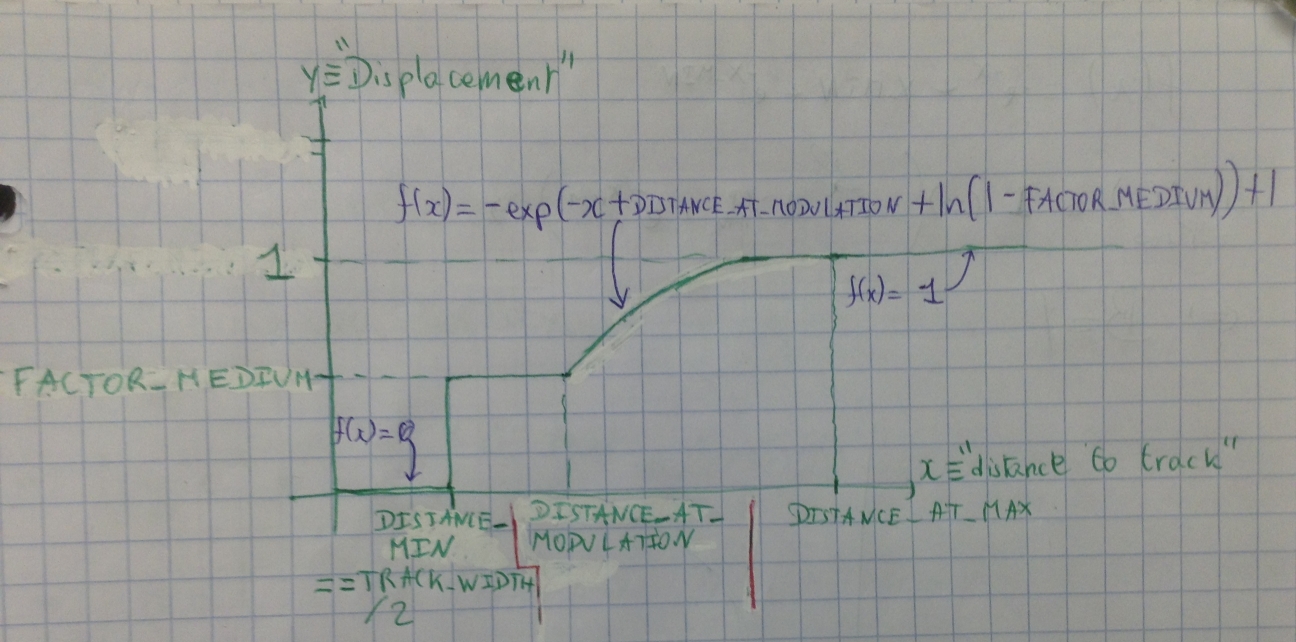 y≡"Displacement"
f(x)=-exp(-x+DISTANCE_AT_MODULATION+ln(1-FACTOR_MEDIUM))+1
1
f(x)= 1
FACTOR_MEDIUM
f(x)=0
x≡"distance to track"
DISTANCE_
MIN
==TRACK_WIDTH
/2
DISTANCE_AT_
MODULATION
DISTANCE_AT_MAX